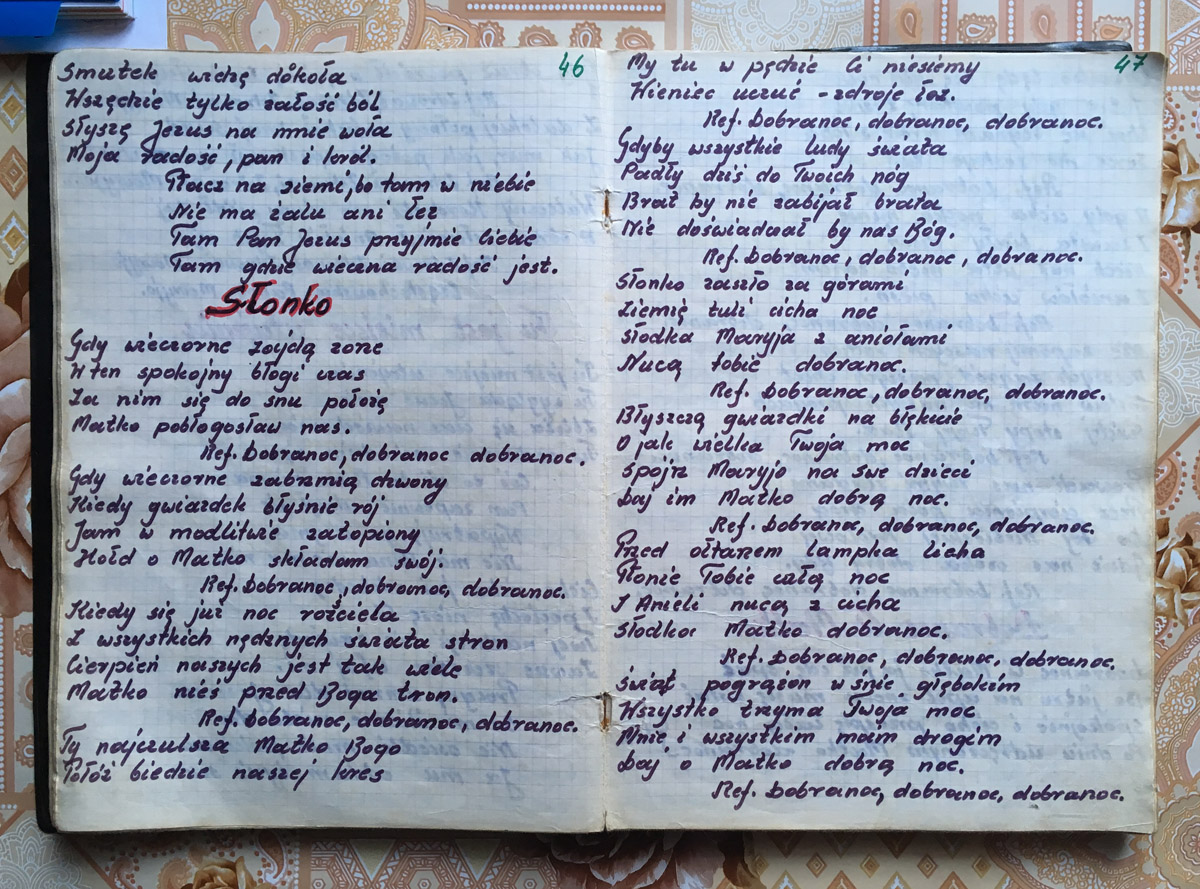 46
Smutek widzę dokoła
Wszędzie tylko żałość ból
Słyszę Jezus na mnie woła
Moja radość, pan i król.
Płacz na ziemi, bo tam w niebie
Nie ma żalu ani łez
Tam Pan Jezus przyjmie Ciebie
Tam gdzie wieczna radość jest.
Słonko
Gdy wieczorne zejdą zorze
W ten spokojny błogi czas
Za nim się do snu położę
Matko pobłogosław nas.
Ref. Dobranoc, dobranoc dobranoc.
Gdy wieczorne zabrzmią dzwony
Kiedy gwiazdek błyśnie rój
Jam w modlitwie zatopiony
Hołd o Matko składam swój.
Ref. Dobranoc, dobranoc, dobranoc.
Kiedy się już noc rozściela
Z wszystkich nędznych świata stron
Cierpień naszych jest tak wiele
Matko nieś przed Boga tron.
Ref. Dobranoc, dobranoc, dobranoc.
Ty najczulsza Matko Bogo
Połóż biedzie naszej kres
47
My tu w pędzie Ci niesiemy
Wieniec uczuć - zdroje łez.
Ref. Dobranoc, dobranoc, dobranoc.
Gdyby wszystkie ludy świata
Padły dziś do Twoich nóg
Brat by nie zabijał brata
Nie doświadczał by nas Bóg.
Ref. Dobranoc, dobranoc, dobranoc.
Słonko zaszło za górami
Ziemię tuli cicha noc
Słodka Maryja z aniołami
Nucą tobie dobranoc.
Ref. Dobranoc, dobranoc, dobranoc.
Błyszczą gwiazdki na błękicie
O jak wielka Twoja moc
Spójrz Maryjo na swe dzieci
Daj im Matko dobrą noc.
Ref. Dobranoc, dobranoc, dobranoc.
Przed ołtarzem lampka licha
Płonie Tobie całą noc
I Anieli nucą z cicha
Słodka Matko dobranoc.
Ref. Dobranoc, dobranoc, dobranoc.
Świat pogrążon w śnie głębokim
Wszystko trzyma Twoja moc
Mnie i wszystkim mam drogim
Daj o Matko dobrą noc.
Ref. Dobranoc, dobranoc, dobranoc.